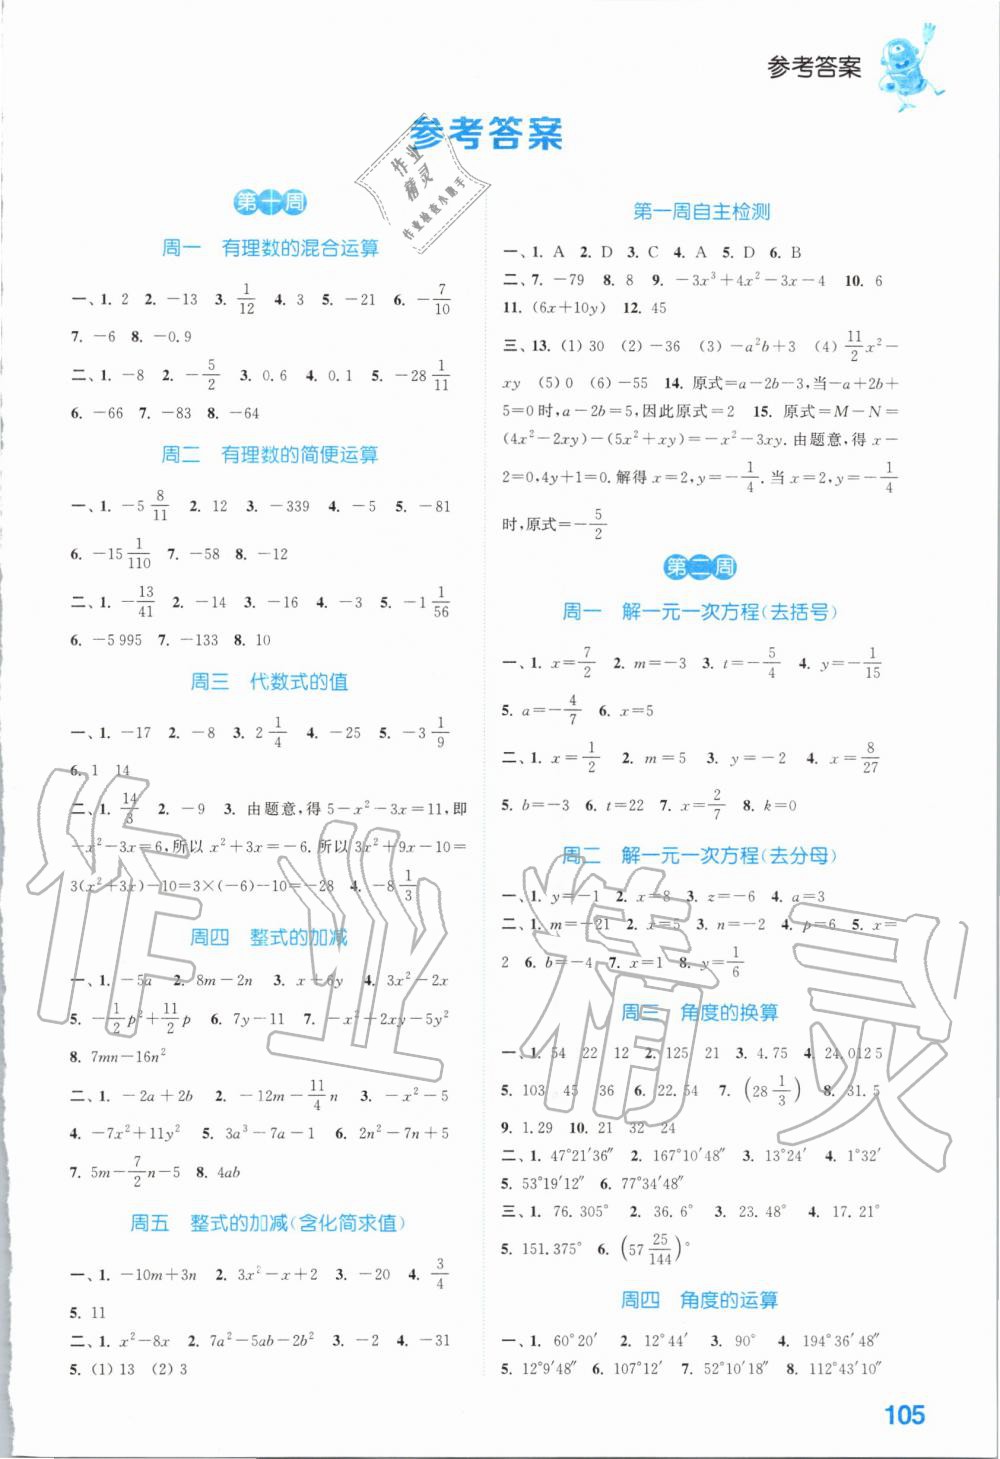 参考答案
参考答案
作业
精灵
作业检查小助手
第十周
周一 有理数的混合运算
一、1. 2 2. －13 3. 1/12 4. 3 5. －21 6. －7/10
7. －6 8. －0.9
二、1. －8 2. －5/2 3. 0.6 4. 0.1 5. －28 1/11
6. －66 7. －83 8. －64
周二 有理数的简便运算
一、1. －5 8/11 2. 12 3. －339 4. －5 5. －81
6. －15 1/110 7. －58 8. －12
二、1. －13/41 2. －14 3. －16 4. －3 5. －1 1/56
6. －5 995 7. －133 8. 10
周三 代数式的值
一、1. －17 2. －8 3. 2 1/4 4. －25 5. －3 1/9
6. 1 14
二、1. 14/3 2. －9 3. 由题意,得 5－x²－3x＝11,即
－x²－3x＝6,所以 x²＋3x＝－6.所以 3x²＋9x－10＝
3(x²＋3x)－10＝3×(－6)－10＝－28 4. －8 1/3
周四 整式的加减
一、1. －5a 2. 8m－2n 3. x＋6y 4. 3x²－2x
5. －1/2 p²＋11/2 p 6. 7y－11 7. －x²＋2xy－5y²
8. 7mn－16n²
二、1. －2a＋2b 2. －12m－11/4 n 3. －x²－5
4. －7x²＋11y² 5. 3a³－7a－1 6. 2n²－7n＋5
7. 5m－7/2 n－5 8. 4ab
周五 整式的加减(含化简求值)
一、1. －10m＋3n 2. 3x²－x＋2 3. －20 4. 3/4
5. 11
二、1. x²－8x 2. 7a²－5ab－2b² 3. －2 4. －31
5. (1) 13 (2) 3
第一周自主检测
一、1. A 2. D 3. C 4. A 5. D 6. B
二、7. －79 8. 8 9. －3x³＋4x²－3x－4 10. 6
11. (6x＋10y) 12. 45
三、13. (1) 30 (2) －36 (3) －a²b＋3 (4) 11/2 x²－
xy (5) 0 (6) －55 14. 原式＝a－2b－3,当－a＋2b＋
5＝0时,a－2b＝5,因此原式＝2 15. 原式＝M－N＝
(4x²－2xy)－(5x²＋xy)＝－x²－3xy.由题意,得 x－
2＝0,4y＋1＝0.解得 x＝2,y＝－1/4.当 x＝2,y＝－1/4
时,原式＝－5/2
第二周
周一 解一元一次方程(去括号)
一、1. x＝7/2 2. m＝－3 3. t＝－5/4 4. y＝－1/15
5. a＝－4/7 6. x＝5
二、1. x＝1/2 2. m＝5 3. y＝－2 4. x＝8/27
5. b＝－3 6. t＝22 7. x＝2/7 8. k＝0
周二 解一元一次方程(去分母)
一、1. y＝－1 2. x＝8 3. z＝－6 4. a＝3
二、1. m＝－21 2. x＝5 3. n＝－2 4. p＝6 5. x＝
2 6. b＝－4 7. x＝1 8. y＝1/6
周三 角度的换算
一、1. 54 22 12 2. 125 21 3. 4.75 4. 24.012 5
5. 103 45 36 6. 22.54 7. (28 1/3) 8. 31.5
9. 1.29 10. 21 32 24
二、1. 47°21′36″ 2. 167°10′48″ 3. 13°24′ 4. 1°32′
5. 53°19′12″ 6. 77°34′48″
三、1. 76.305° 2. 36.6° 3. 23.48° 4. 17.21°
5. 151.375° 6. (57 25/144)°
周四 角度的运算
一、1. 60°20′ 2. 12°44′ 3. 90° 4. 194°36′48″
5. 12°9′48″ 6. 107°12′ 7. 52°10′18″ 8. 112°43′10″
105
作业精灵